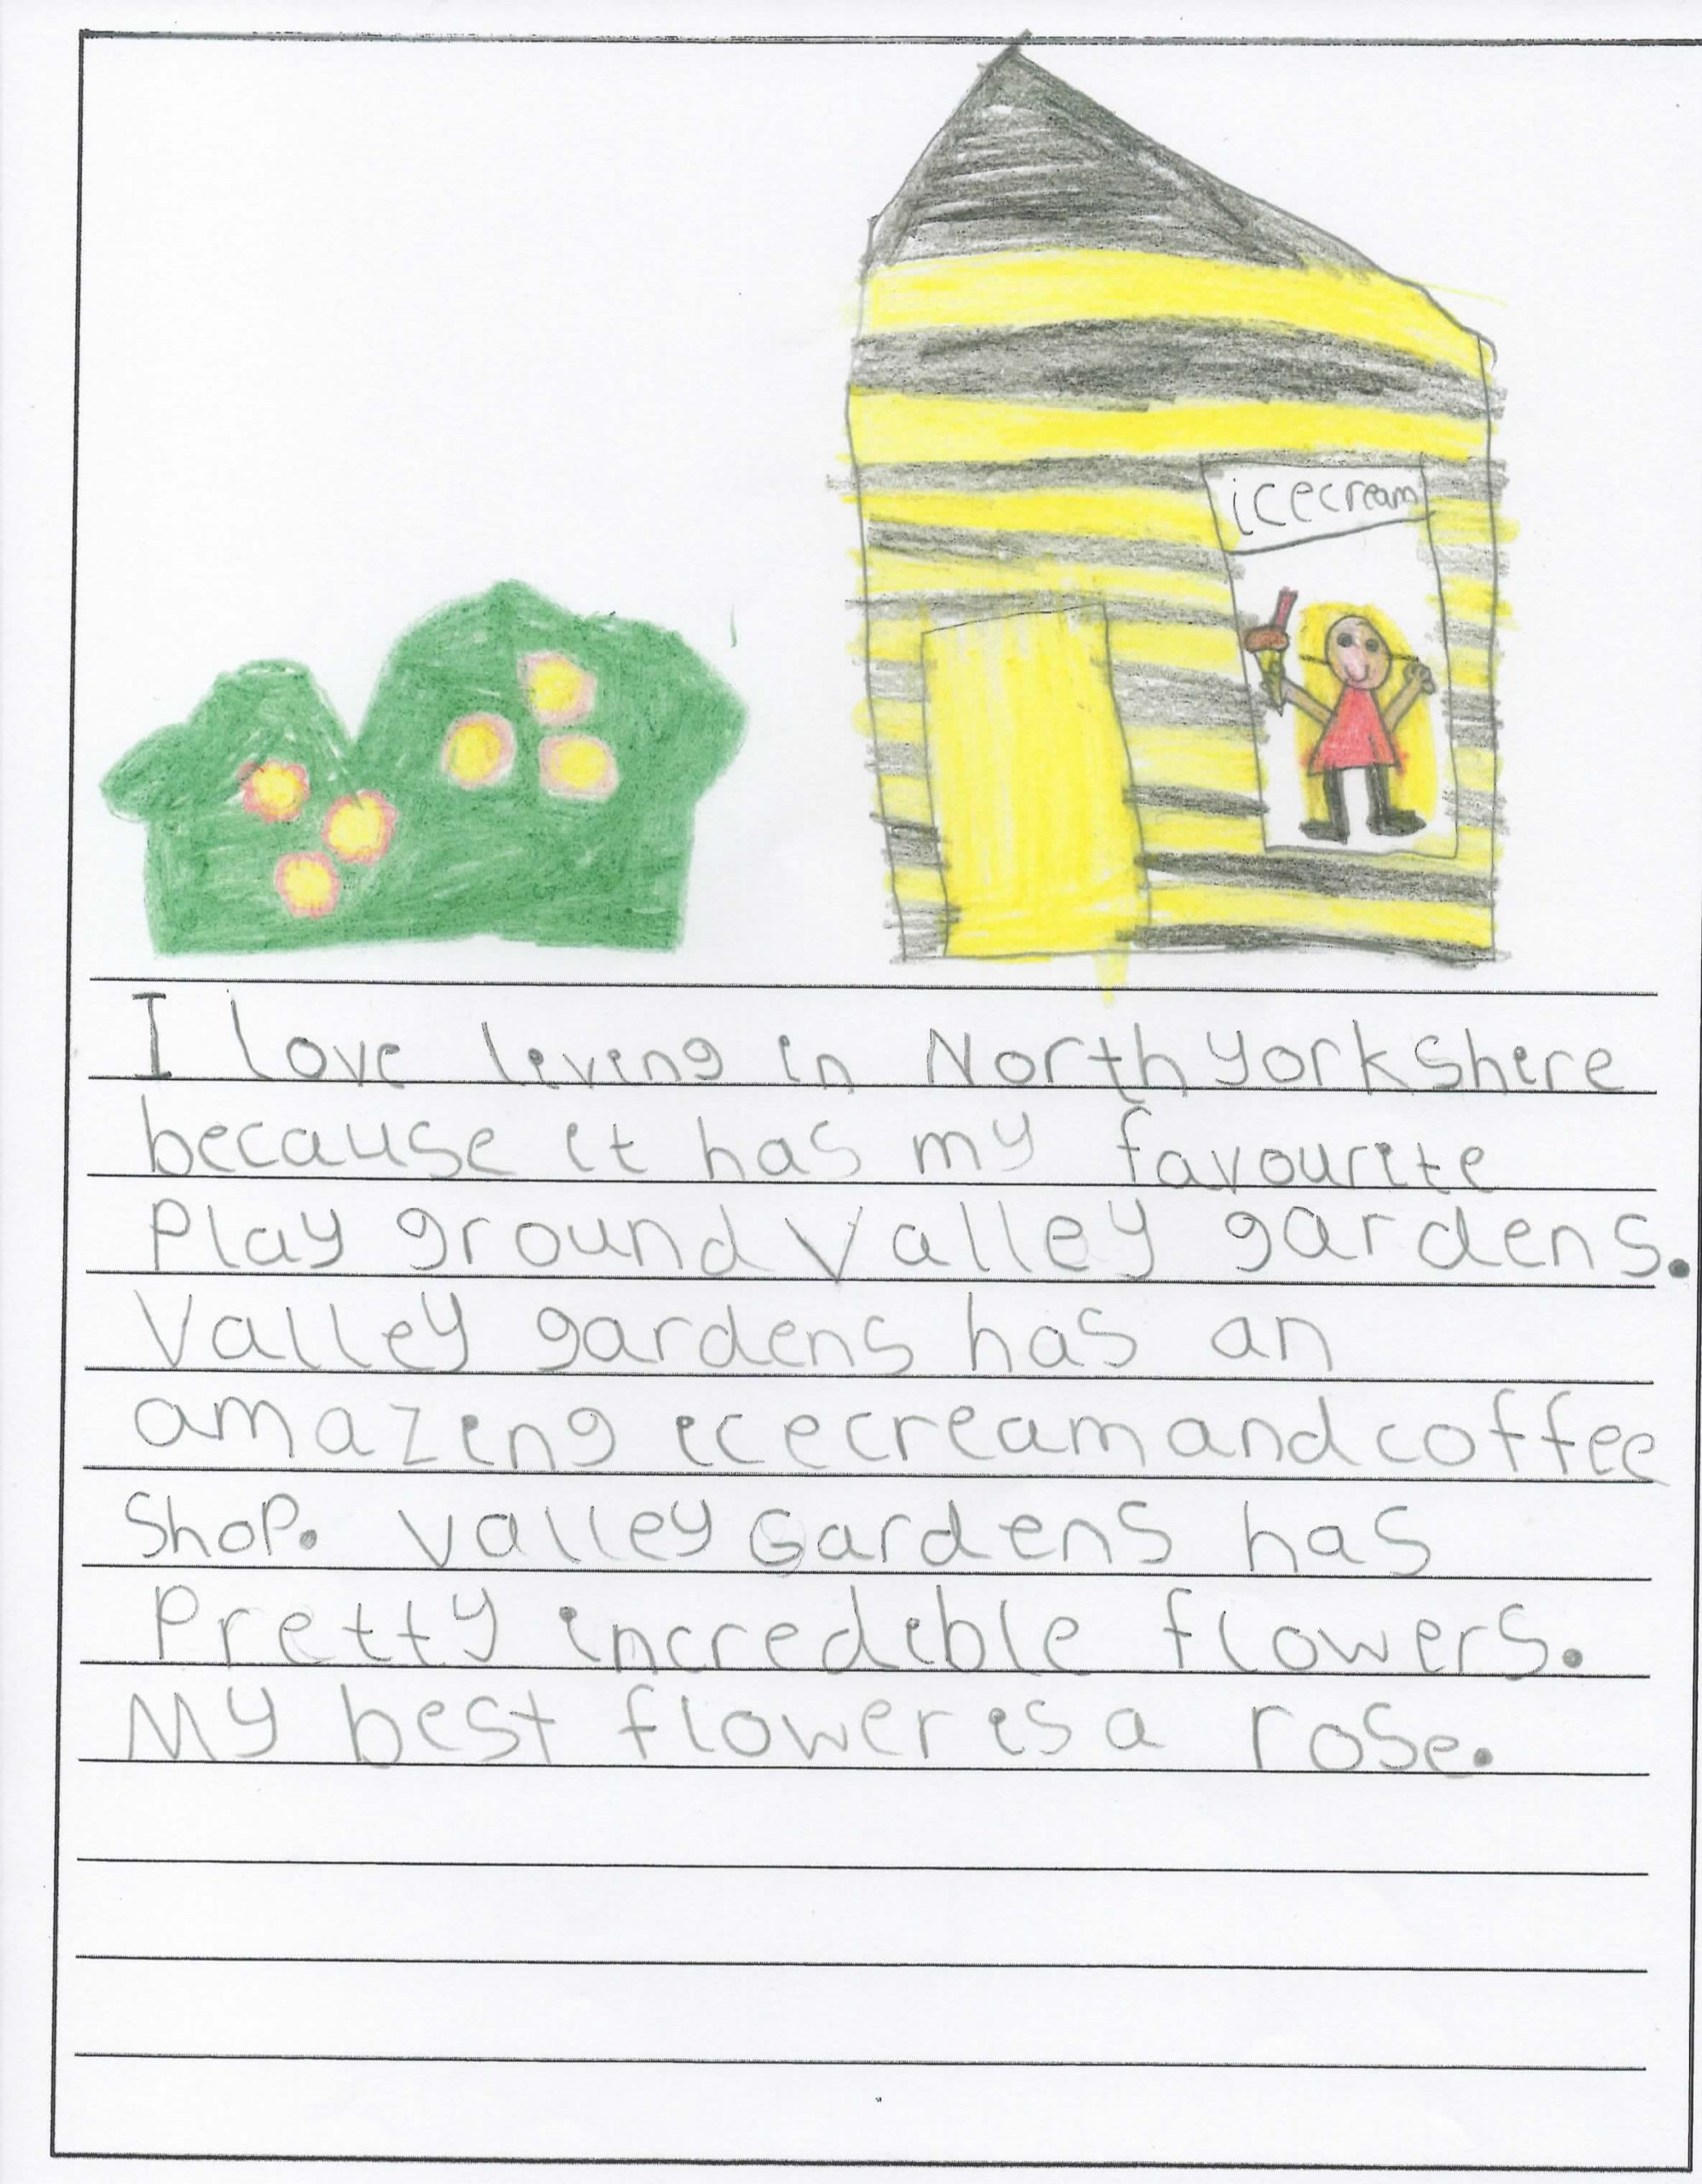 icecream
I love living in North yorkshire
because it has my favourite
Play ground Valley gardens.
Valley gardens has an
amazing icecream and coffee
Shop. Valley Gardens has
Pretty incredible flowers.
My best flower is a rose.